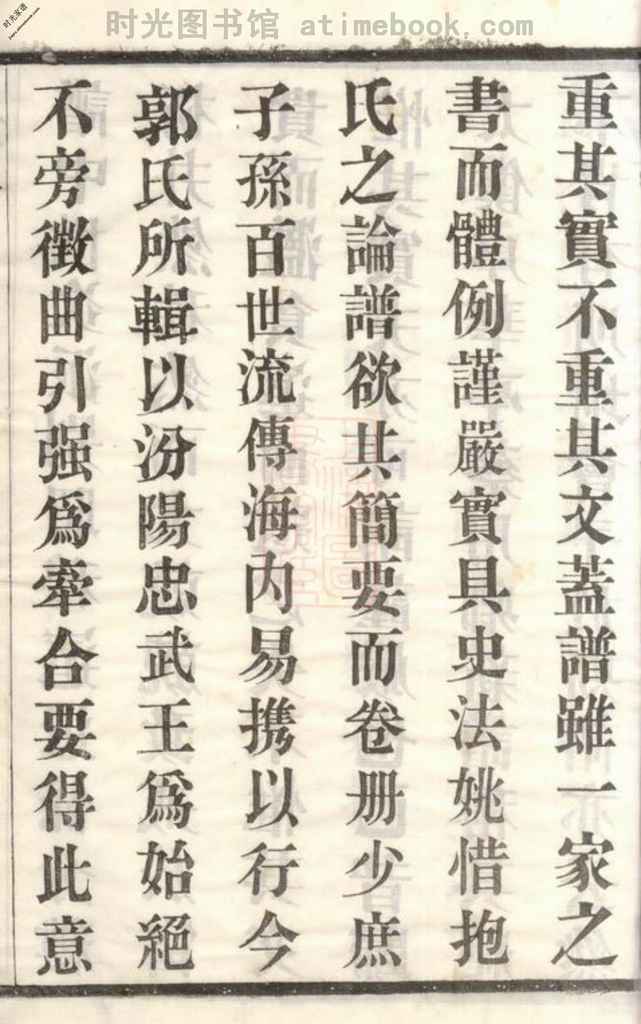 时光图书馆 atimebook.com
时光家谱
重其實不重其文蓋譜雖一家之
書而體例謹嚴實具史法姚惜抱
氏之論譜欲其簡要而卷册少庶
子孫百世流傳海内易携以行今
郭氏所輯以汾陽忠武王爲始絕
不旁徵曲引强爲牽合要得此意